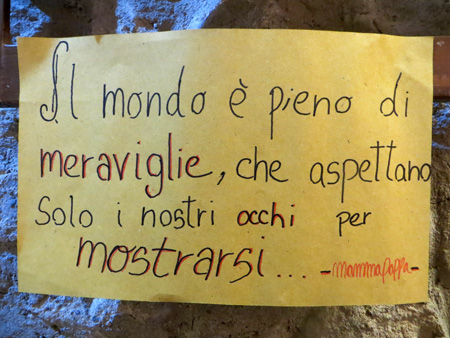 Il mondo è pieno di
meraviglie, che aspettano
solo i nostri occhi per
mostrarsi... -mammapappa-